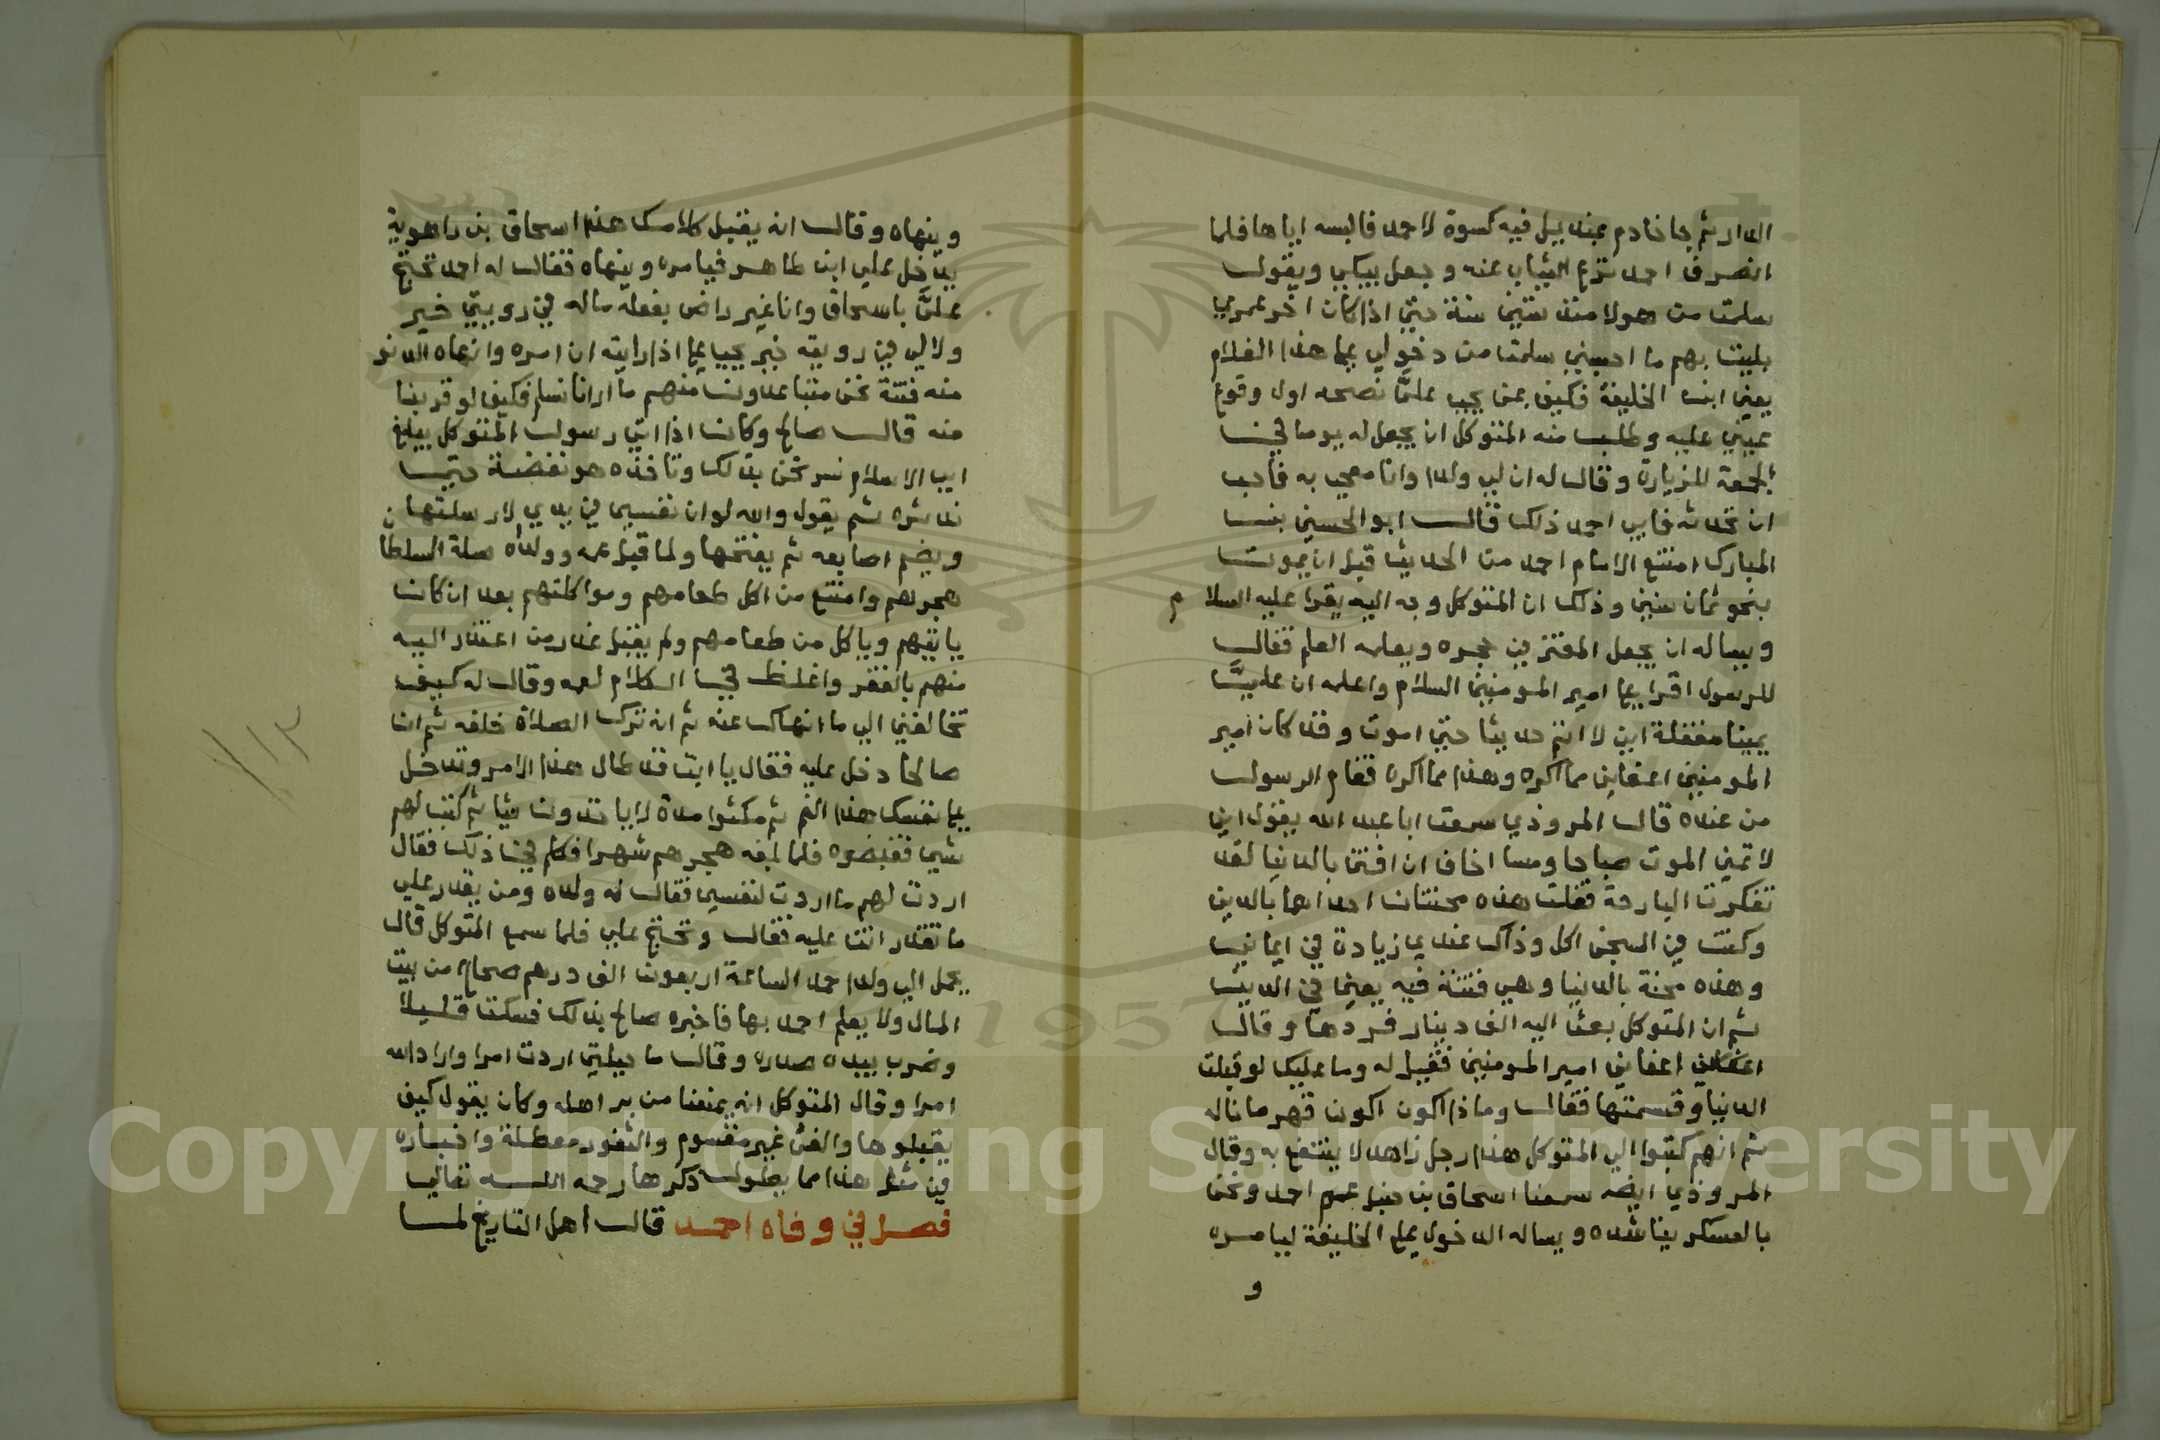 الدار ثم جا خادم بمنديل فيه كسوة لاحمد فالبسه اياها فلما
انصرف احمد نزع الثياب عنه وجعل يبكي ويقول
سلمت من هولا منذ ستين سنة حتي اذا كان اخر عمري
بليت بهم ما احسبني سلمت من دخولي علي هذا الغلام
يعني ابن الخليفة فكيف بمن يجب عليَّ نصحه اول وقوع
عيني عليه وطلب منه المتوكل ان يجعل له يوما في
الجمعة للزيارة وقال له ان لي ولدا وانا معجب به فاحب
ان تحدثه فابي احمد ذلك قال ابو الحسين بن
المبارك امتنع الامام احمد من الحديث قبل ان يموت
بنحو ثمان سنين وذلك ان المتوكل وجه اليه يقرا عليه السلام
ويساله ان يجعل المعتز في حجره ويعلمه العلم فقال
للرسول اقرا علي امير المومنين السلام واعلمه ان عليَّ
يمينا مغفلة اني لا اتم حديثا حتي اموت وقد كان امير
المومنين اعفاني مما اكره وهذا مما اكره فقام الرسول
من عنده قال المروذي سمعت ابا عبد الله يقول اني
لاتمني الموت صباحا ومسا اخاف ان افتن بالدنيا لقد
تفكرت البارحة فقلت هذه محنتان احداهما بالدين
وكنت في السجن اكل وذاك عندي زيادة في ايماني
وهذه محنة بالدنيا وهي فتنة فيه يعني في الدين
ثم ان المتوكل بعث اليه الف دينار فردها وقال
اعفاني امير المومنين فقيل له وما عليك لو قبلت
الدنيا وقسمتها فقال وماذا اكون اكون قهرمانا له
ثم انهم كتبوا الي المتوكل هذا رجل زاهد لا ينتفع به وقال
المروذي ايضه سمعنا اسحاق بن حنبل عم احمد ونحن
بالعسكر يناشده ويساله الدخول علي الخليفة ليامره
و
وينهاه وقال انه يقبل كلامك هذا اسحاق بن راهوية
يدخل علي ابن طاهر فيامره وينهاه فقال له احمد تحتج
عليَّ باسحاق وانا غير راض بفعله ماله في رويتي خير
ولا لي في رويته خير يجب علي اذا رايته ان امره وانهاه الدنو
منه فتنة نحن متباعدون منهم ما ارانا نسلم فكيف لو قربنا
منه قال صالح وكان اذا اتي رسول المتوكل يبلغ
ابي الاسلام نسر نحن بذلك وتاخذه هو نفضة حتي
ندثره ثم يقول والله لو ان نفسي في يدي لارسلتها
ويضم اصابعه ثم يفتحها ولما قبل عمه وولداه صلة السلطان
هجرهم وامتنع من اكل طعامهم ومواكلتهم بعد ان كان
ياتيهم وياكل من طعامهم ولم يقبل عذر من اعتذر اليه
منهم بالفقر واغلظ في الكلام لعمه وقال له كيف
تخالفني الي ما انهاك عنه ثم انه ترك الصلاة خلفه ثم ان
صالحا دخل عليه فقال يا ابت قد طال هذا الامر وتدخل
علي نفسك هذا الغم ثم مكثوا مدة لا ياخذون شيا ثم كتب لهم
شي فقبضوه فلما بلغه هجرهم شهرا فكلم في ذلك فقال
اردت لهم ما اردت لنفسي فقال له ولده ومن يقدر علي
ما تقدر انت عليه فقال وتحتج علي فلما سمع المتوكل قال
يحمل الي ولد احمد الساعة اربعون الف درهم صحاح من بيت
المال ولا يعلم احمد بها فاخبره صالح بذلك فسكت قليلا
وضرب بيده صدره وقال ما حيلتي اردت امرا واراد الله
امرا وقال المتوكل انه يمنعنا من بر اهله وكان يقول كيف
يقبلوها والفئ غير مقسوم والثغور معطلة واخباره
في مثل هذا مما يطول ذكرها رحمه الله تعالي
فصل في وفاه احمد قال اهل التاريخ لما